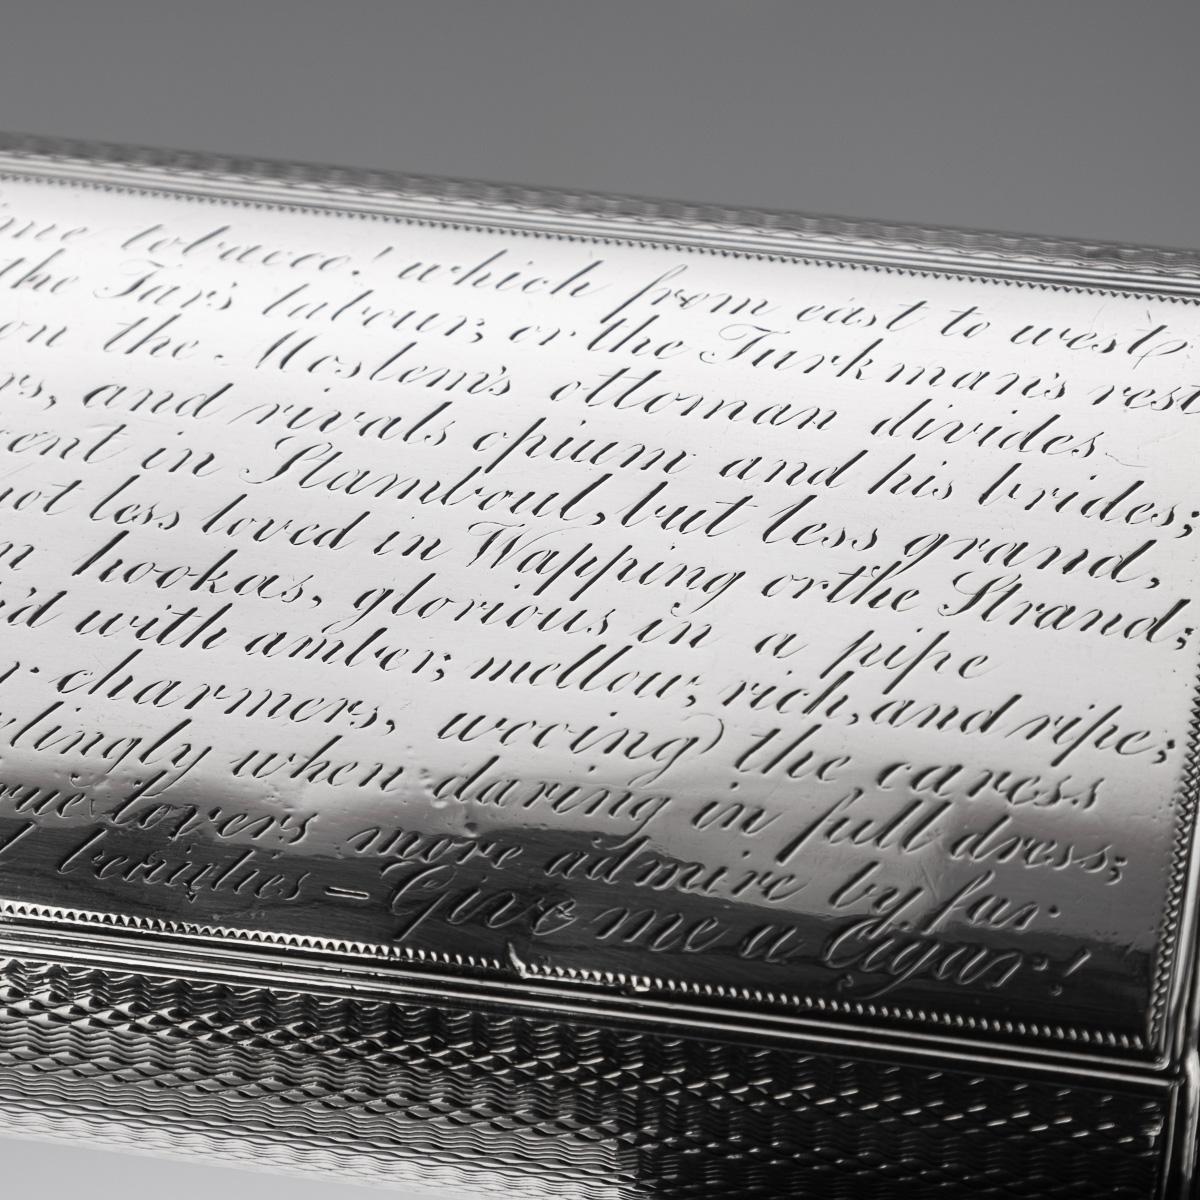 tobacco! which from east to west
the Tar's labour, or the Turkman's rest
on the Moslem's ottoman divides
and rivals opium and his brides,
in Stamboul, but less grand,
not less loved in Wapping or the Strand;
hookas, glorious in a pipe
with amber, mellow, rich, and ripe;
charmers, wooing the caress
when daring in full dress;
lovers more admire by far
Give me a Cigar!